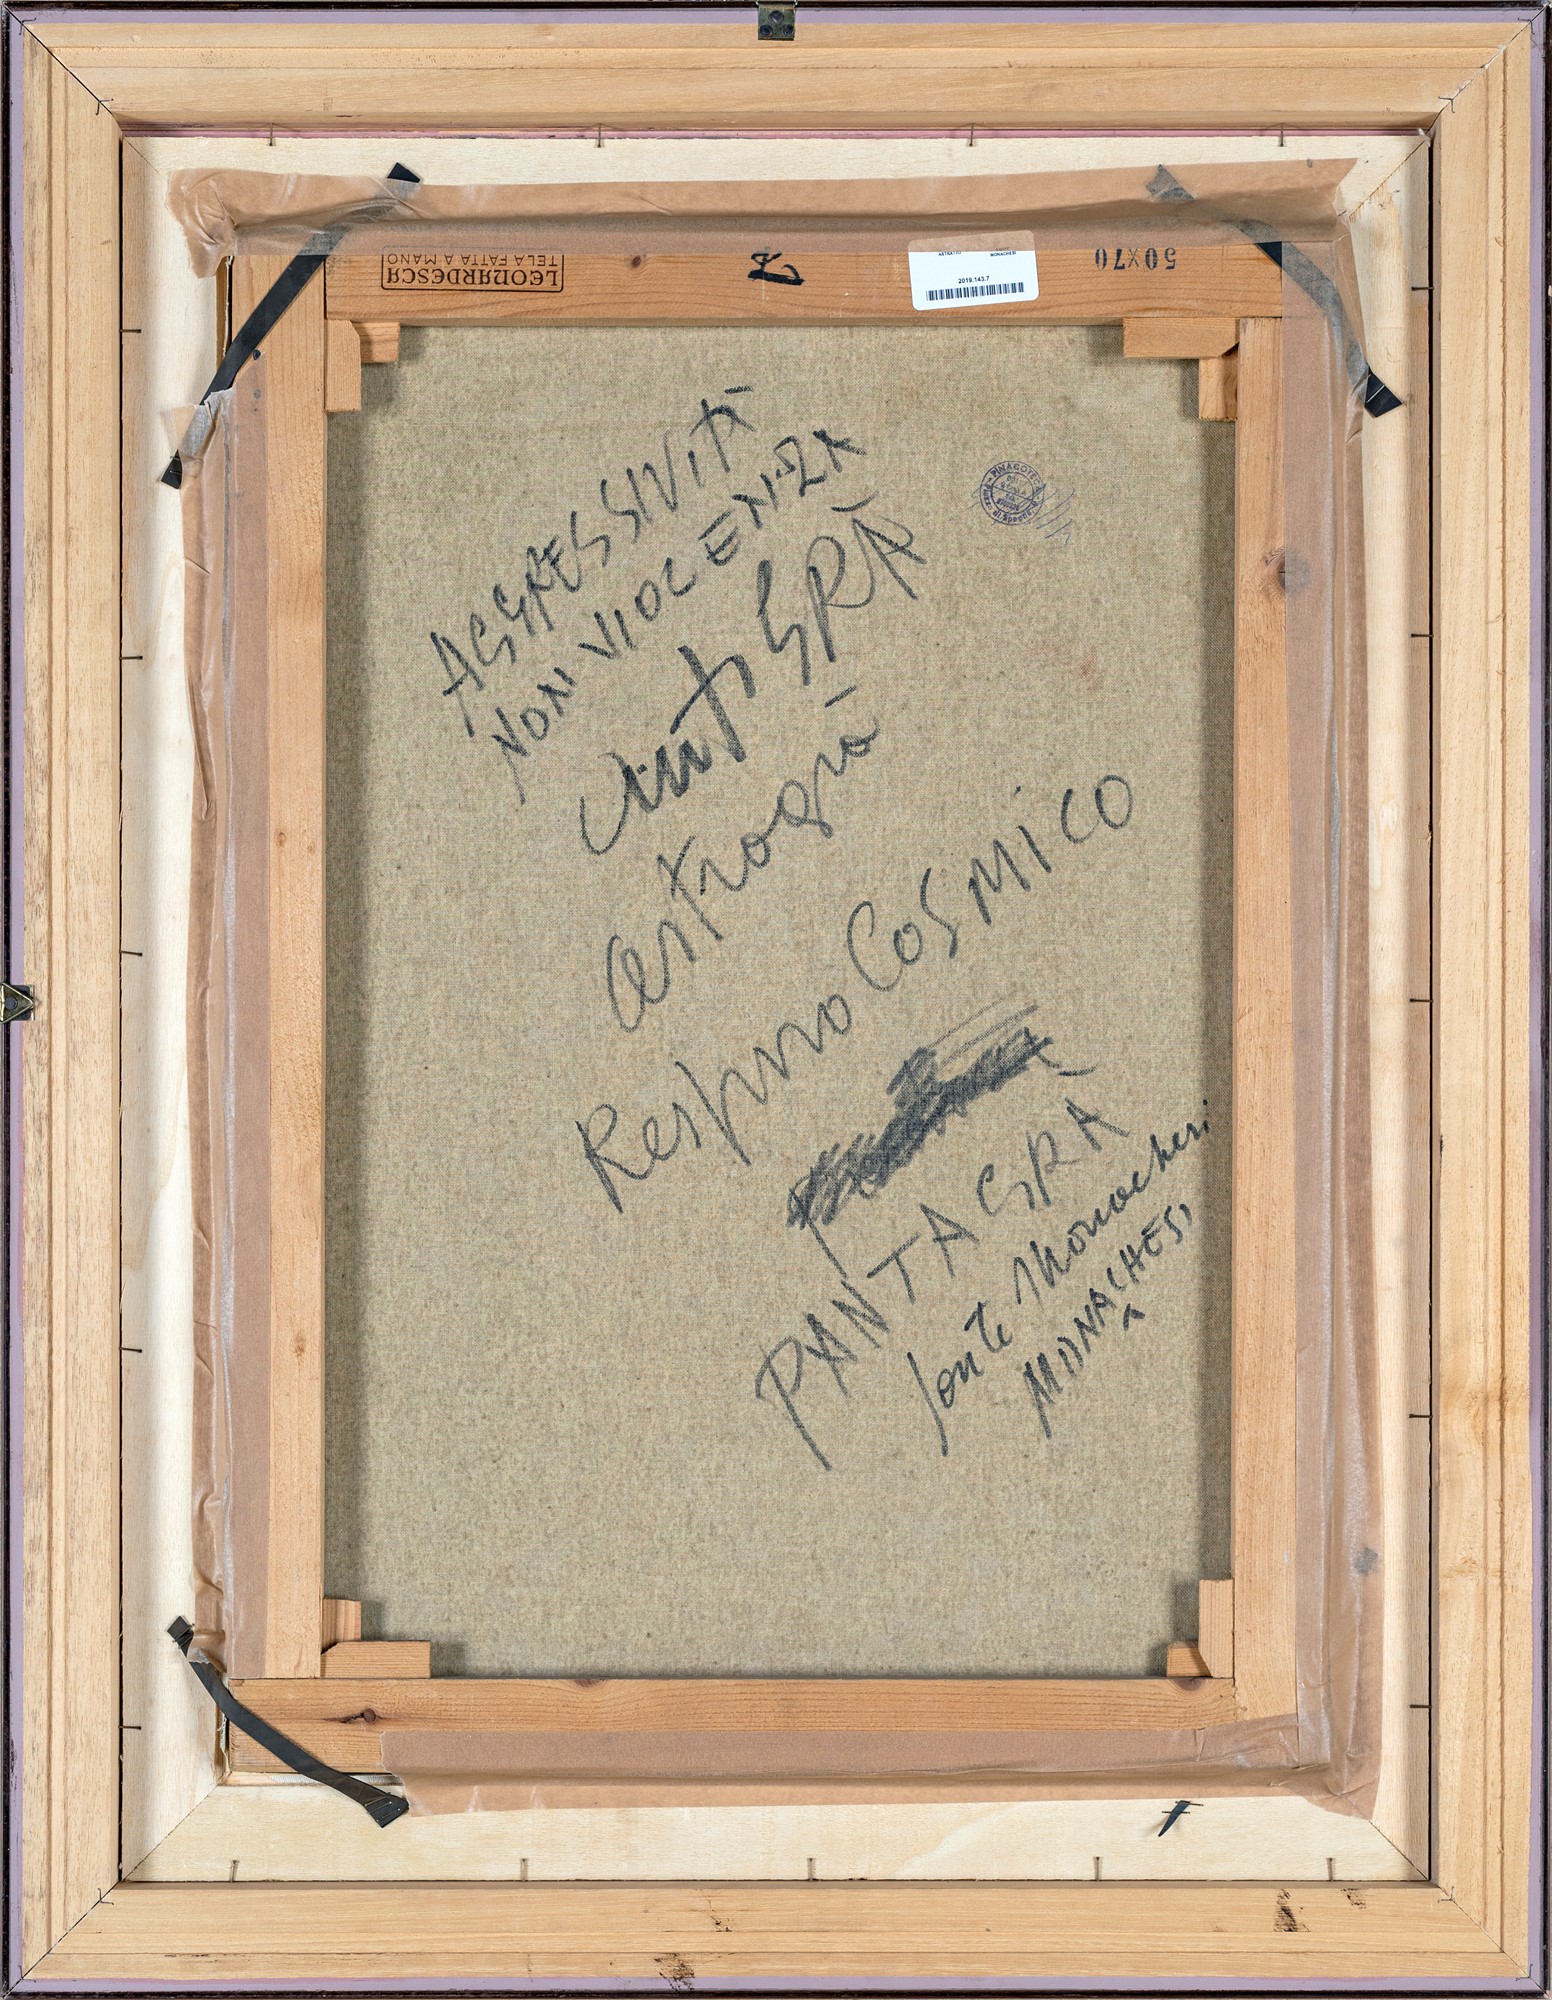 LEONARDESCA
TELA FATTA A MANO
ASTRATTO MONACHESI
2019.143.7
50X70
PINACOTECA
AGGRESSIVITÀ
NON VIOLENZA
anti GRÀ
astrogrà
Respiro COSMICO
PANTAGRÀ
Sante Monachesi
MONACHESI